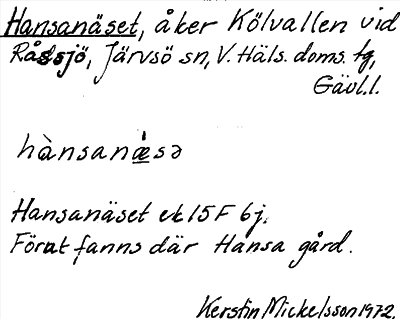 Hansanäset, åker Kölvallen vid
Råssjö, Järvsö sn, V. Häls. doms. fg,
Gävl.l.
hànsanæ̀sə
Hansanäset ek 15 F 6j.
Förut fanns där Hansa gård.
Kerstin Mickelsson 1972.